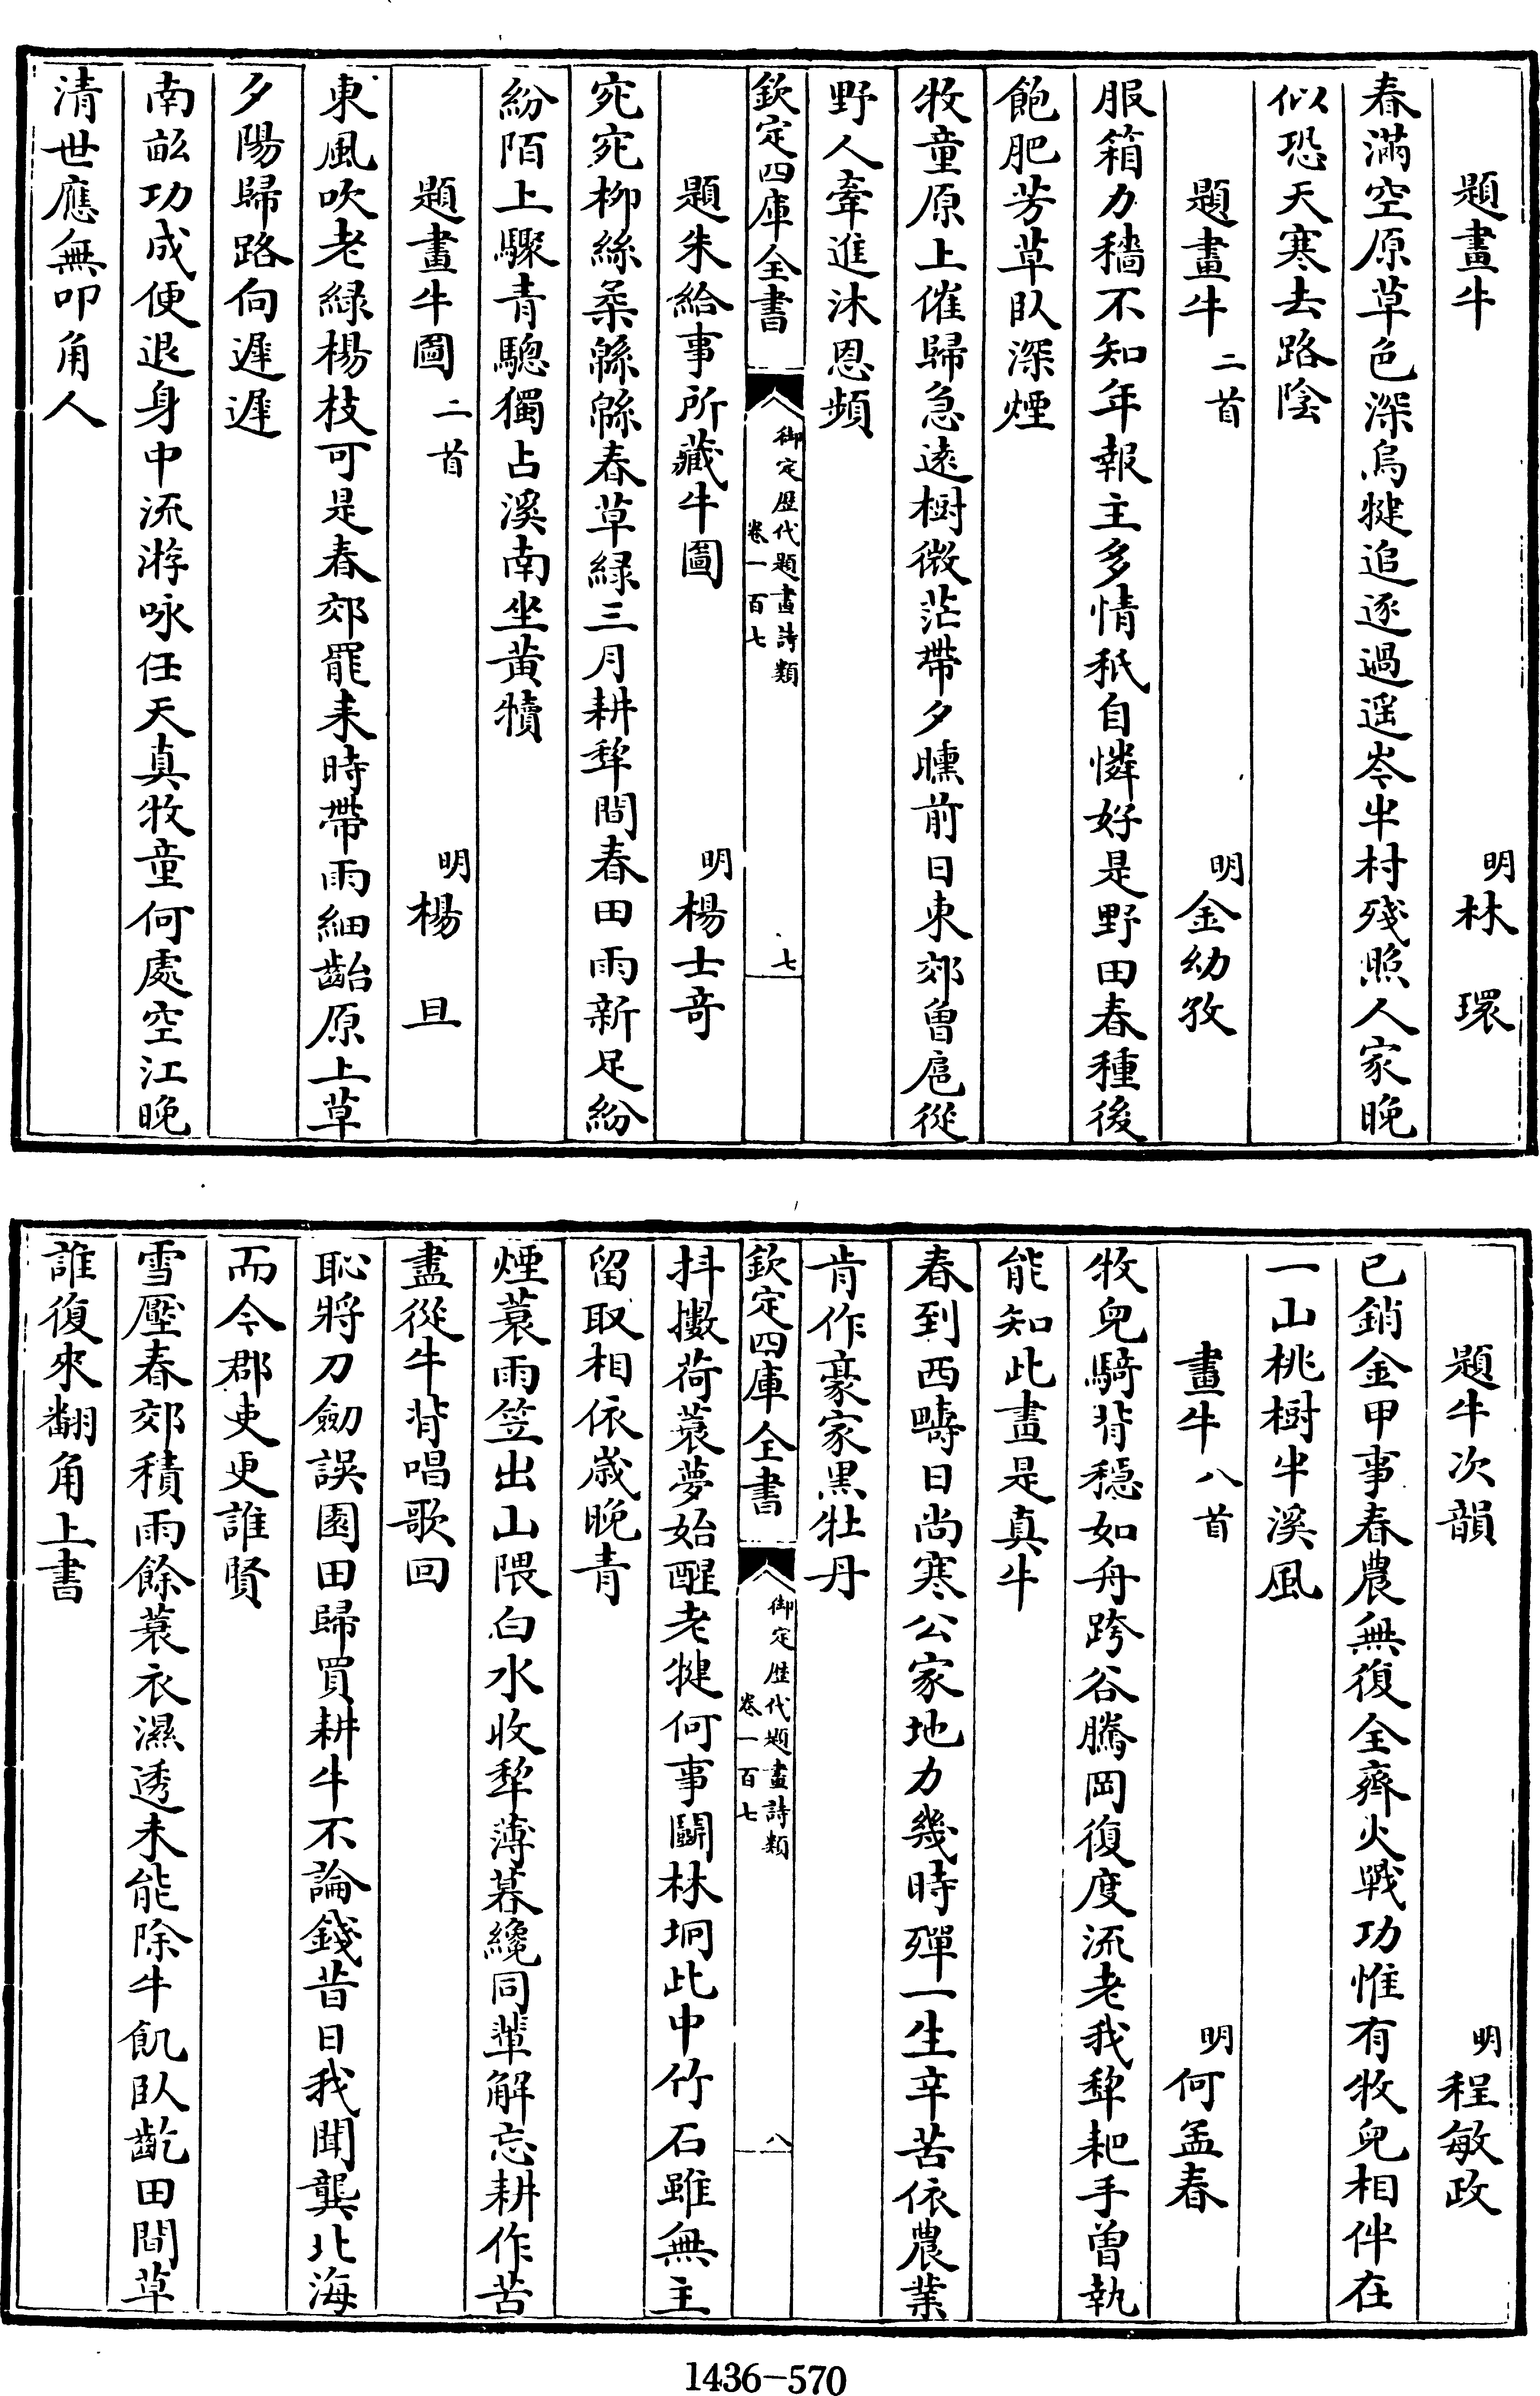 題畫牛 明林環
春滿空原草色深烏犍追逐過遥岑半村殘照人家晚
似恐天寒去路陰
題畫牛二首 明金幼孜
服箱力穡不知年報主多情秖自憐好是野田春種後
飽肥芳草臥深煙
牧童原上催歸急遠樹微茫帶夕曛前日東郊曽扈從
野人牽進沐恩頻
欽定四庫全書 御定歴代題畫詩類 卷一百七 七
題朱給事所藏牛圖 明楊士竒
宛宛柳絲柔緜緜春草緑三月耕犂間春田雨新足紛
紛陌上驟青驄獨占溪南坐黄犢
題畫牛圖二首 明楊旦
東風吹老緑楊枝可是春郊罷耒時帶雨細齝原上草
夕陽歸路向遲遲
南畝功成便退身中流游咏任天真牧童何處空江晚
清世應無叩角人
題牛次韻 明程敏政
已銷金甲事春農無復全齊火戰功惟有牧兒相伴在
一山桃樹半溪風
畫牛八首 明何孟春
牧兒騎背穩如舟跨谷騰岡復度流老我犂耙手曽執
能知此畫是真牛
春到西疇日尚寒公家地力幾時殫一生辛苦依農業
肯作豪家黒牡丹
欽定四庫全書 御定歴代題畫詩類 卷一百七 八
抖擻荷蓑夢始醒老犍何事鬭林坰此中竹石雖無主
留取相依歳晩青
煙蓑雨笠出山隈白水收犂薄暮纔同輩解忘耕作苦
盡從牛背唱歌回
恥將刀劒誤園田歸買耕牛不論錢昔日我聞龔北海
而今郡吏更誰賢
雪壓春郊積雨餘蓑衣濕透未能除牛飢臥齕田間草
誰復來翻角上書
1436-570